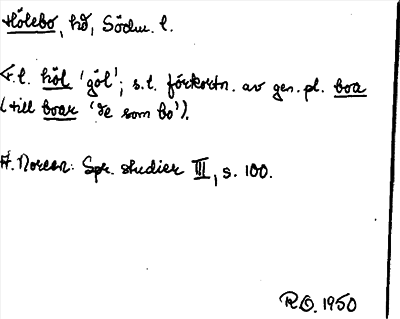 Hölebo, hd, Södm. l.
F.l. höl 'göl'; s.l. förkortn. av gen. pl. boa
(till boar 'de som bo').
A. Noreen: Spr. studier III, s. 100.
R.O. 1950